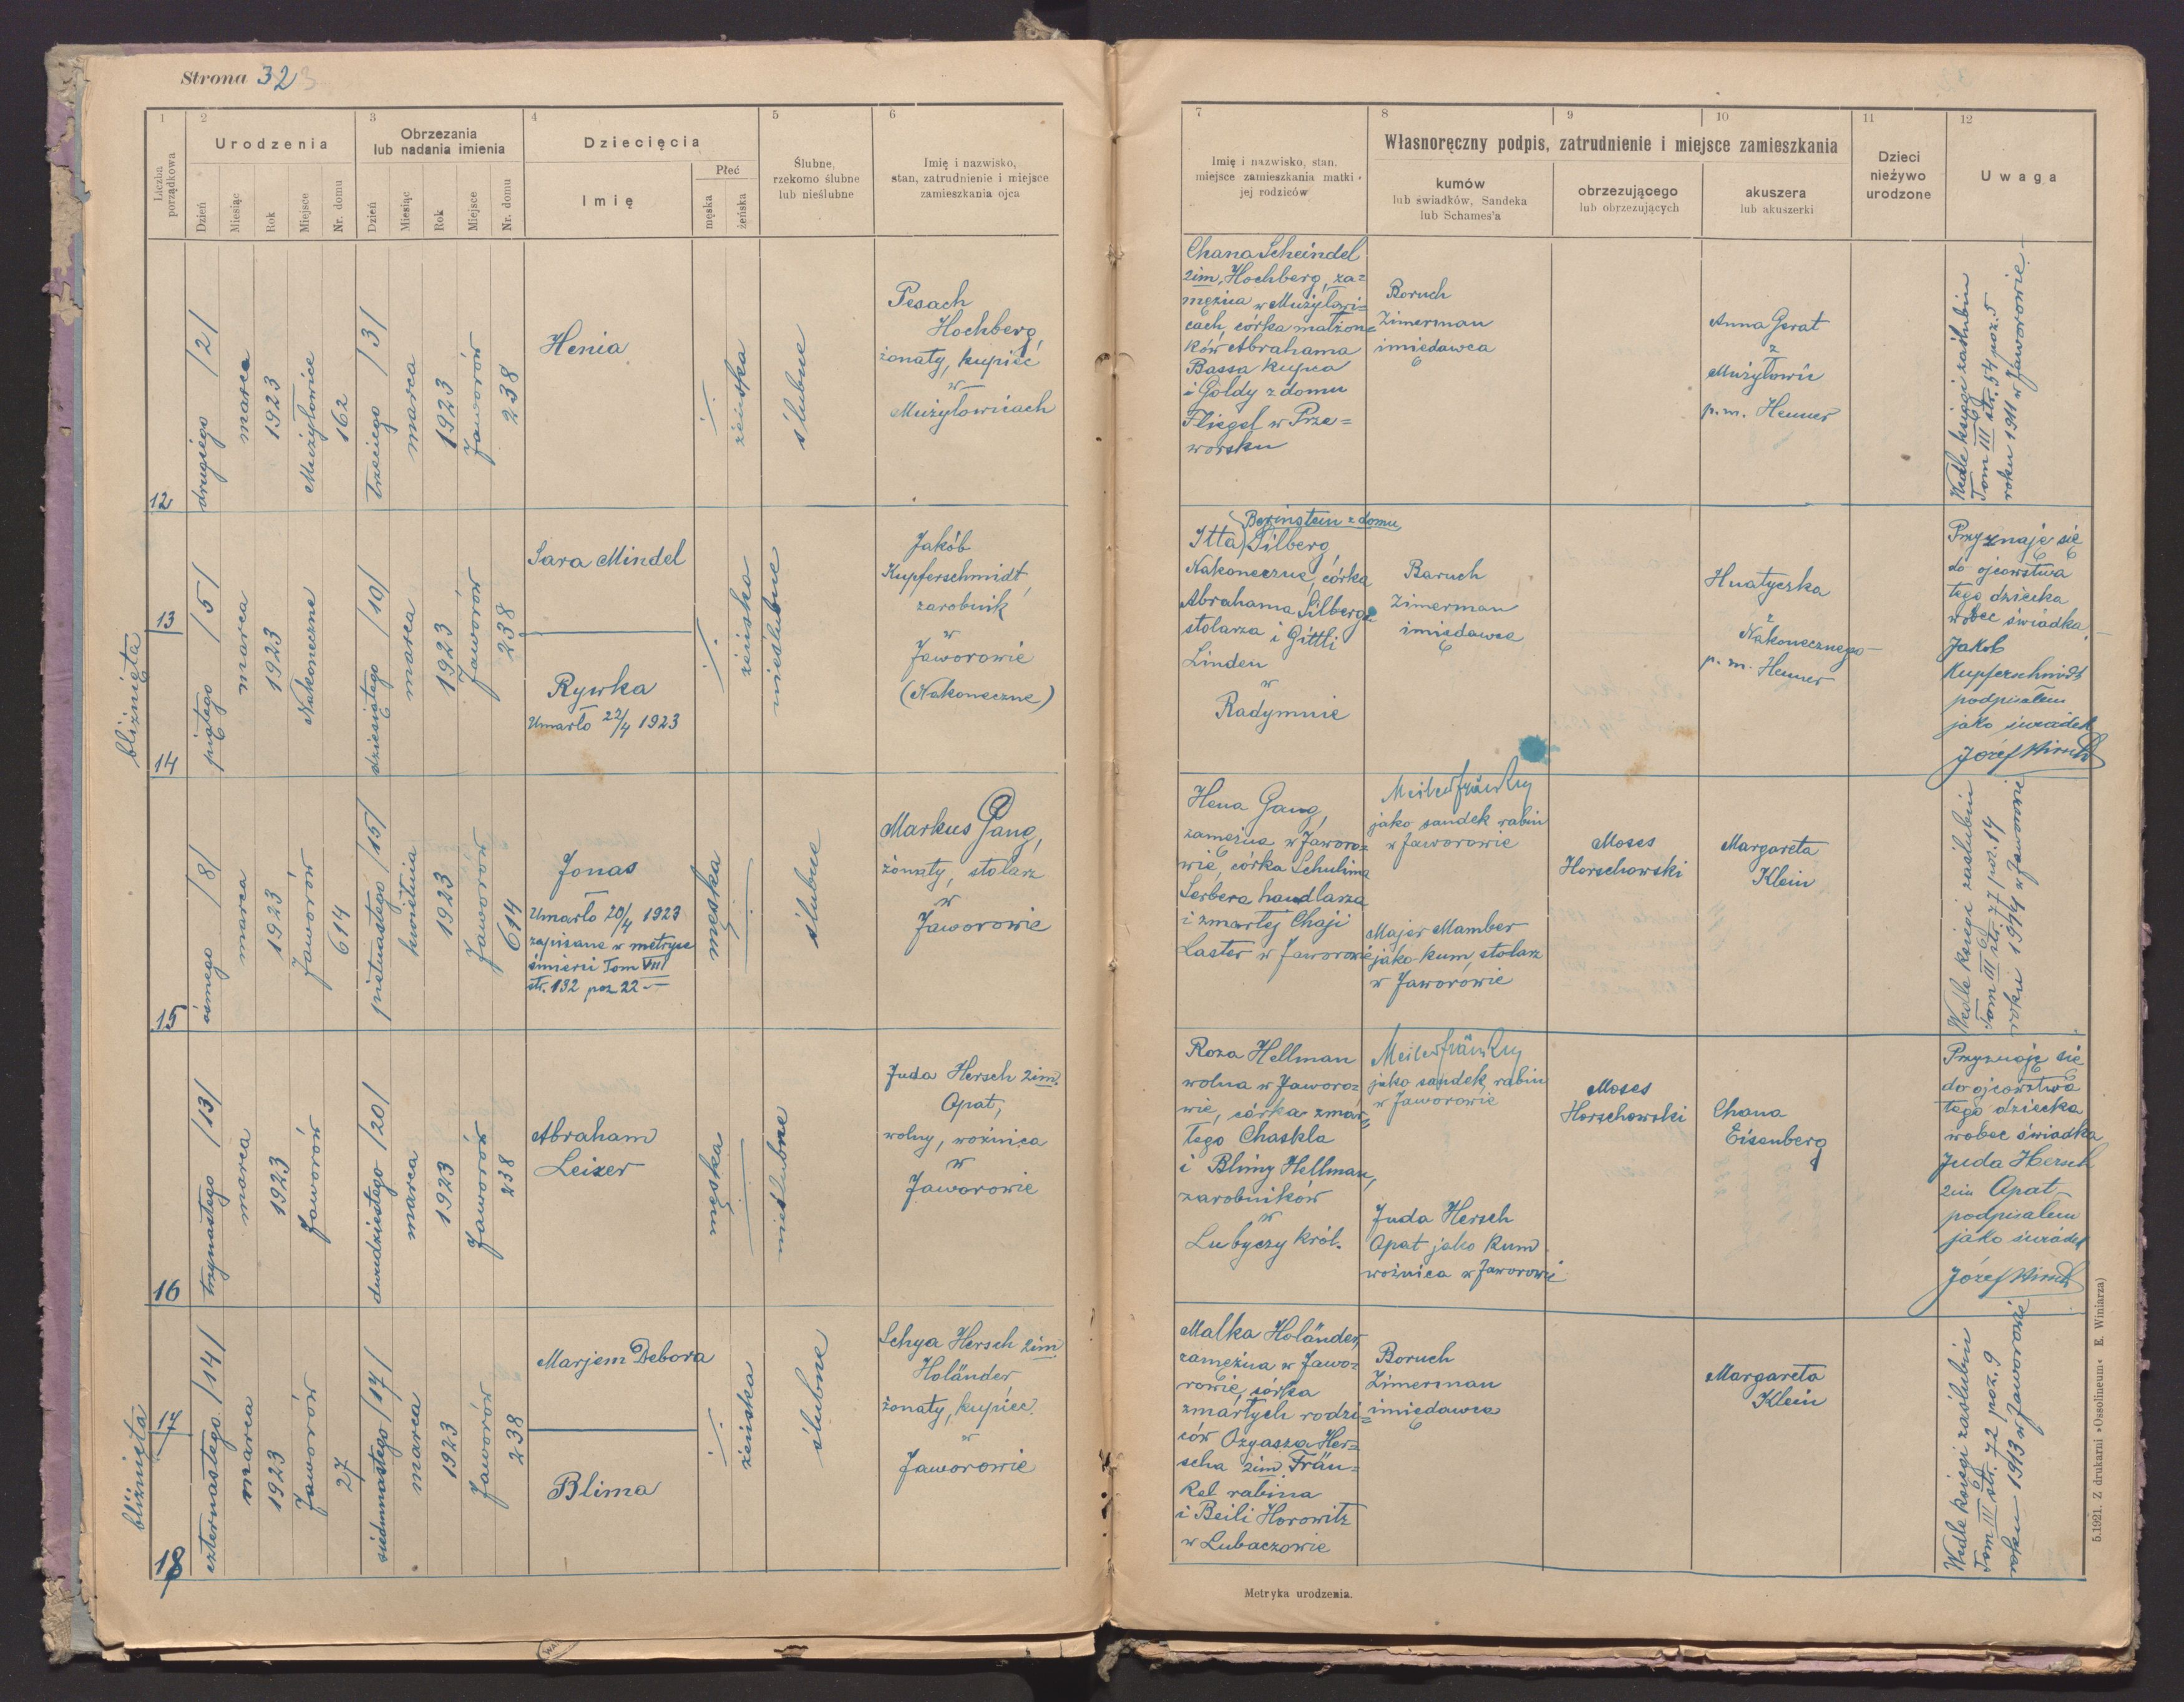 Strona 32
1
2
3
4
5
6
Liczba porządkowa
Urodzenia
Obrzezania
lub nadania imienia
Dziecięcia
Ślubne,
rzekomo ślubne
lub nieślubne
Imię i nazwisko,
stan, zatrudnienie i miejsce
zamieszkania ojca
Dzień
Miesiąc
Rok
Miejsce
Nr. domu
Dzień
Miesiąc
Rok
Miejsce
Nr. domu
Imię
Płeć
męska
żeńska
12
drugiego /2/
marca
1923
Mużyłowice
162
trzeciego /3/
marca
1923
Jaworów
238
Henia
żeńska
ślubne
Pesach
Hochberg,
żonaty, kupiec
w
Mużyłowicach
bliźnięta
13
14
piątego /5/
marca
1923
Nakoneczne
dziesiątego /10/
marca
1923
Jaworów
238
Sara Mindel
Rywka
Umarło 22/4 1923
żeńska
nieślubne
Jakób
Kupferschmidt,
zarobnik
w
Jaworowie
(Nakoneczne)
15
ósmego /8/
marca
1923
Jaworów
614
piętnastego /15/
kwietnia
1923
Jaworów
614
Jonas
Umarło 20/4 1923
zapisane w metryce
śmierci Tom VII
str. 132 poz 22
męska
ślubne
Markus Gang,
żonaty, stolarz
w
Jaworowie
16
trzynastego /13/
marca
1923
Jaworów
dwudziestego /20/
marca
1923
Jaworów
238
Abraham
Leizer
męska
nieślubne
Juda Hersch 2im.
Opat,
wolny, woźnica
w
Jaworowie
bliźnięta
17
18
czternastego /14/
marca
1923
Jaworów
27
siedmnastego /17/
marca
1923
Jaworów
238
Marjem Debora
Blima
żeńska
ślubne
Schya Hersch 2im
Holänder
żonaty, kupiec
w
Jaworowie
7
8
9
10
11
12
Imię i nazwisko, stan,
miejsce zamieszkania matki
jej rodziców
Własnoręczny podpis, zatrudnienie i miejsce zamieszkania
kumów
lub świadków, Sandeka
lub Schames'a
obrzezującego
lub obrzezujących
akuszera
lub akuszerki
Dzieci
nieżywo
urodzone
Uwaga
Chana Scheindel
2im, Hochberg, za=
mężna w Mużyłowi=
cach, córka małżon=
ków Abrahama
Bassa kupca
i Goldy z domu
Fliegel w Prze=
worsku
Boruch
Zimerman
imiędawca
Anna Gerat
z
Mużyłowic
p.m. Hemer
Wedle księgi zaślubin
Tom III str. 54 poz. 5
roku 1911 w Jaworowie
Berinstein z domu
Itta Silberg,
Nakoneczne, córka
Abrahama Silberga
stolarza i Gittli
Linden
w
Radymnie
Baruch
Zimerman
imiędawca
Hnatyczka
z
Nakonecznego
p.m. Hemer
Przyznaję się
do ojcowstwa
tego dziecka
wobec świadka
Jakob
Kupferschmidt
podpisałem
jako świadek
Józef Hirsch
Hena Gang,
zamężna w Jaworo=
wie, córka Schulima
Serbera handlarza
i zmarłej Chaji
Laster w Jaworowie
jako sandek rabin
w Jaworowie
Majer Mamber
jako kum, stolarz
w Jaworowie
Moses
Horschowski
Margareta
Klein
Wedle księgi zaślubin
Tom III str. 77 poz. 14
roku 1914 w Jaworowie
Roza Hellman
wolna w Jaworo=
wie, córka zmar=
łego Chaskla
i Blimy Hellman,
zarobników
w
Lubyczy król.
jako sandek, rabin
w Jaworowie
Juda Hersch
Opat jako kum
woźnica w Jaworowie
Moses
Horschowski
Chana
Eisenberg
Przyznaję się
do ojcowstwa
tego dziecka
wobec świadka
Juda Hersch
2im Opat
podpisałem
jako świadek
Józef Hirsch
Malka Holänder,
zamężna w Jawo=
rowie, córka
zmarłych rodzi=
ców Ozyasza Her=
scha 2im Frän=
kel rabina
i Beili Horowitz
w Lubaczowie
Boruch
Zimerman
imiędawca
Margareta
Klein
Wedle księgi zaślubin
Tom III str. 72 poz. 9
roku 1913 w Jaworowie
Metryka urodzenia.
5.1921. Z drukarni »Ossolineum« E. Winiarza)